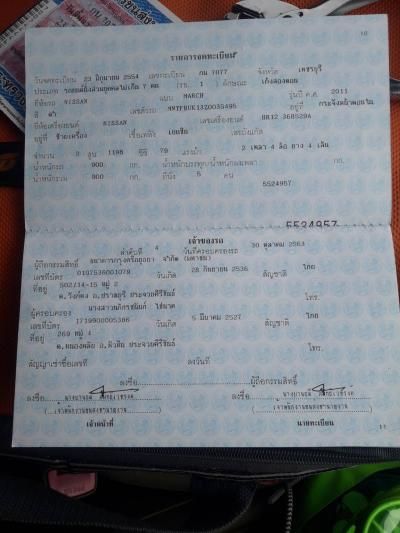 10
รายการจดทะเบียน
วันจดทะเบียน 23 มิถุนายน 2554 เลขทะเบียน กม 7077 จังหวัด เพชรบุรี
ประเภท รถยนต์นั่งส่วนบุคคลไม่เกิน 7 คน (รย. 1 ) ลักษณะ เก๋งสองตอน
ยี่ห้อรถ NISSAN แบบ MARCH รุ่นปี ค.ศ. 2011
สี ดำ เลขตัวรถ อยู่ที่
ยี่ห้อเครื่องยนต์ NISSAN เลขเครื่องยนต์ HR12 368529A
อยู่ที่ เชื้อเพลิง เบนซิน เลขถังแก๊ส
จำนวน 3 สูบ 1198 ซีซี 79 แรงม้า 2 เพลา 4 ล้อ ยาง 4 เส้น
น้ำหนักรถ 900 กก. น้ำหนักบรรทุก/น้ำหนักลงเพลา กก.
น้ำหนักรวม 900 กก. ที่นั่ง 5 คน
5524957
5524957
เจ้าของรถ
ลำดับที่ 4 วันที่ครอบครองรถ 30 ตุลาคม 2563
ผู้ถือกรรมสิทธิ์ ธนาคารกรุงศรีอยุธยา จำกัด (มหาชน)
เลขที่บัตร 0107536001079 วันเกิด 28 กันยายน 2536 สัญชาติ ไทย
ที่อยู่ 502/14-15 หมู่ 2
ต.วังก์พง อ.ปราณบุรี ประจวบคีรีขันธ์ โทร.
ผู้ครอบครอง
เลขที่บัตร 1719900005386 วันเกิด 5 มีนาคม 2527 สัญชาติ ไทย
ที่อยู่ 269 หมู่ 4
ต.หนองพลับ อ.หัวหิน ประจวบคีรีขันธ์ โทร.
สัญญาเช่าซื้อเลขที่ ลงวันที่
ลงชื่อ ผู้ถือกรรมสิทธิ์
ลงชื่อ ลงชื่อ
เจ้าหน้าที่ นายทะเบียน
11